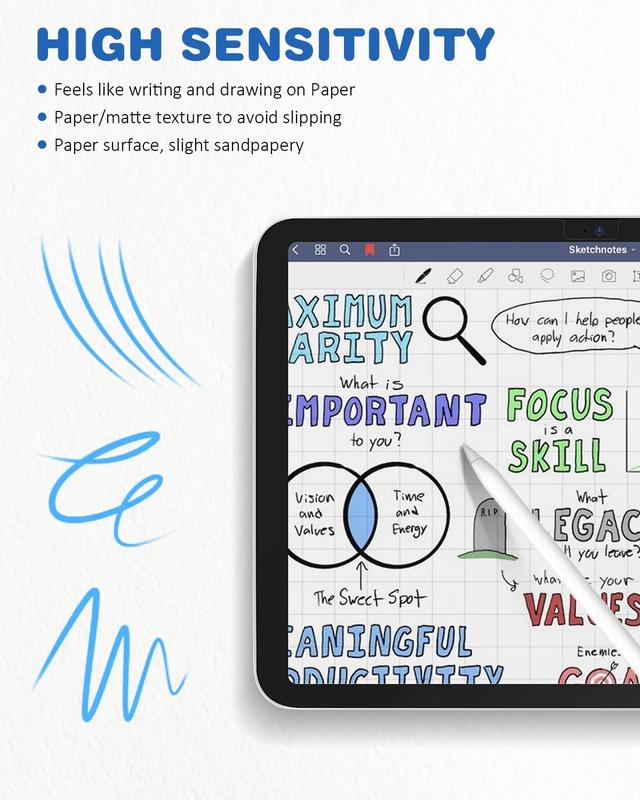 HIGH SENSITIVITY
Feels like writing and drawing on Paper
Paper/matte texture to avoid slipping
Paper surface, slight sandpapery
Sketchnotes
AXIMUM
ARITY
How can I help people
apply action?
What is
IMPORTANT
to you?
FOCUS
is a
SKILL
Vision
and
Values
Time
and
Energy
The Sweet Spot
R.I.P.
What
LEGAC
you leave?
your
VALUES
EANINGFUL
ODUCTIVITY
Enemies
GOA